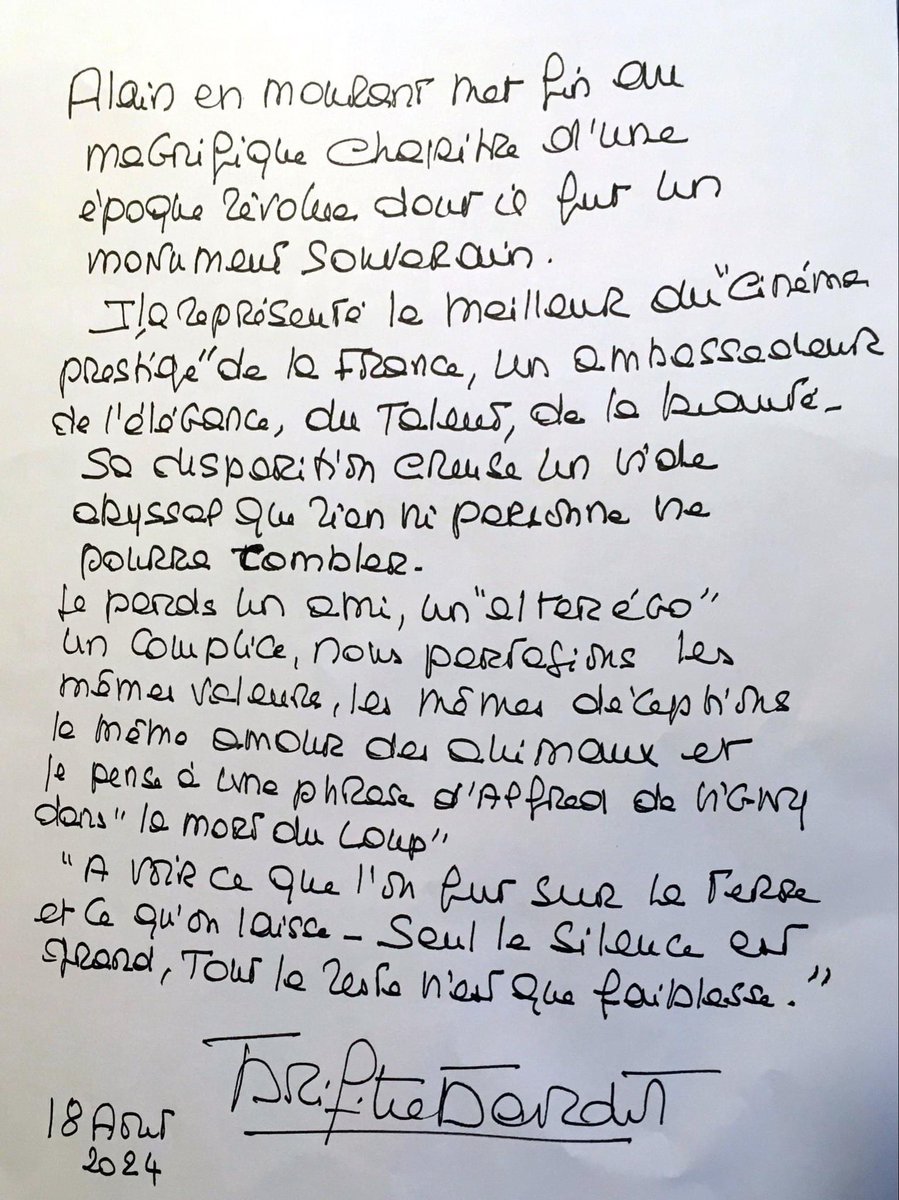 Alain en mourant met fin au
magnifique chapitre d'une
époque révolue dont il fut un
monument souverain.
Il a représenté le meilleur du "cinéma
prestige" de la France, un ambassadeur
de l'élégance, du talent, de la beauté -
Sa disparition creuse un vide
abyssal que rien ni personne ne
pourra combler.
Je perds un ami, un "alter égo"
un complice, nous partagions les
mêmes valeurs, les mêmes déceptions
le même amour des animaux et
je pense à une phrase d'Alfred de Vigny
dans "la mort du Loup"
"A voir ce que l'on fut sur la Terre
et ce qu'on laisse - Seul le silence est
grand, Tout le reste n'est que faiblesse."
Brigitte Bardot
18 Aout
2024